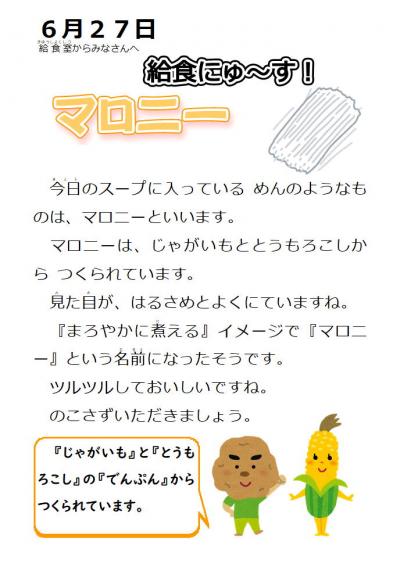 ６月２７日
給食室からみなさんへ
給食にゅ～す！
マロニー
今日のスープに入っている めんのようなも
のは、マロニーといいます。
マロニーは、じゃがいもととうもろこしか
ら つくられています。
見た目が、はるさめとよくにていますね。
『まろやかに煮える』イメージで『マロニ
ー』という名前になったそうです。
ツルツルしておいしいですね。
のこさずいただきましょう。
『じゃがいも』と『とうも
ろこし』の『でんぷん』から
つくられています。